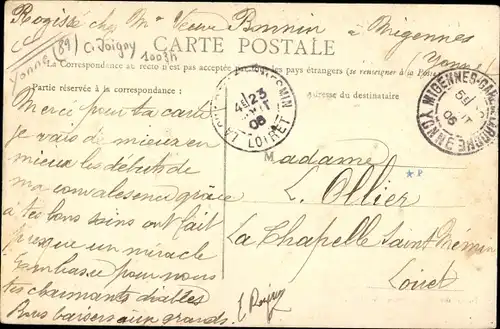 Rogissé chez Mme Veuve Bonnin à Migennes
(Yonne)
Yonne (89) C. Joigny 1003h
CARTE POSTALE
La Correspondance au recto n'est pas acceptée pays étrangers (se renseigner à la Poste
Partie réservée à la correspondance :
Adresse du destinataire
LOIRET
23
08
MIGENNES
YONNE
08
Merci pour ta carte
je vais de mieux en
mieux les débuts de
ma convalescence grâce
à tes bons soins ont fait
presque un miracle
Embrasse pour nous
tes charmants diables
Bons baisers aux grands
Madame
L. Ollier
La Chapelle Saint Mesmin
Loiret